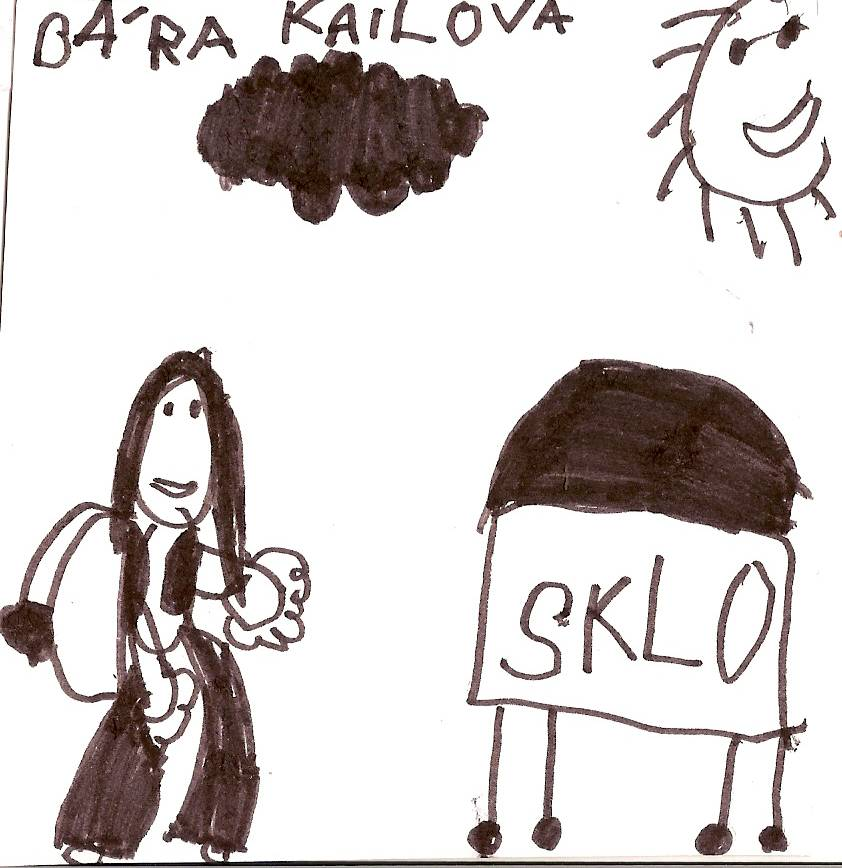 BÁRA KAILOVA
SKLO